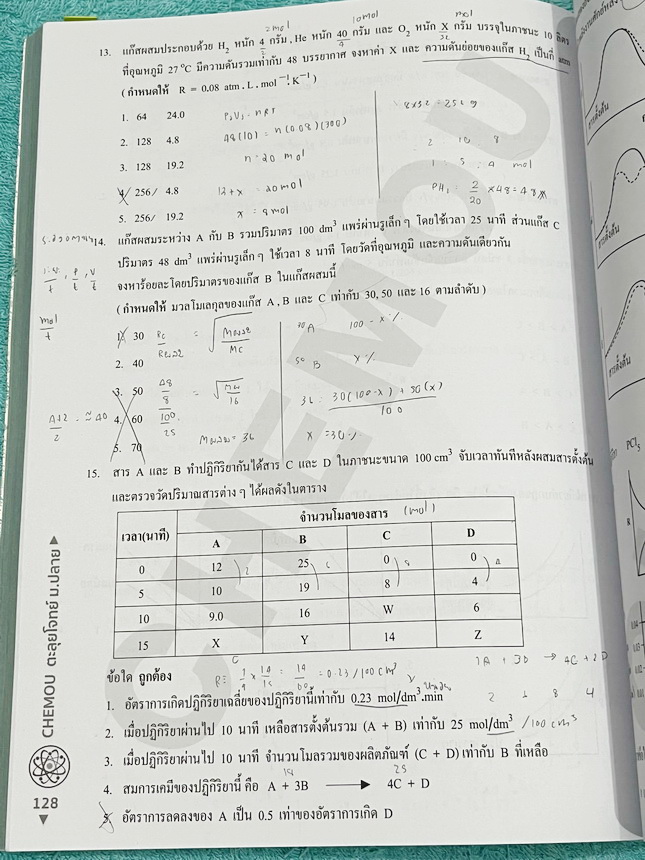 2mol 10mol
13. แก๊สผสมประกอบด้วย H2 หนัก 4 กรัม , He หนัก 40 กรัม และ O2 หนัก X กรัม บรรจุในภาชนะ 10 ลิตร
ที่อุณหภูมิ 27 °C มีความดันรวมเท่ากับ 48 บรรยากาศ จงหาค่า X และ ความดันย่อยของแก๊ส H2 เป็นกี่ atm
( กำหนดให้ R = 0.08 atm . L . mol⁻¹. K⁻¹ )
1. 64 24.0
2. 128 4.8
48(10) = n(0.08)(300)
3. 128 19.2
n = 20 mol
4. 256 4.8
12+x = 20mol
5. 256 19.2
8x32 = 256 g
2 : 10 : 8
1 : 5 : 4 mol
PH2 : 2/20 x48 = 4.8
14. แก๊สผสมระหว่าง A กับ B รวมปริมาตร 100 dm³ แพร่ผ่านรูเล็ก ๆ โดยใช้เวลา 25 นาที ส่วนแก๊ส C
ปริมาตร 48 dm³ แพร่ผ่านรูเล็ก ๆ ใช้เวลา 8 นาที โดยวัดที่อุณหภูมิ และความดันเดียวกัน
จงหาร้อยละโดยปริมาตรของแก๊ส B ในแก๊สผสมนี้
( กำหนดให้ มวลโมเลกุลของแก๊ส A , B และ C เท่ากับ 30, 50 และ 16 ตามลำดับ )
mol/t
1. 30
2. 40
3. 50
4. 60
5. 70
A 100 - x %
50 B x %
36 : 30(100-x) + 50(x) / 100
x = 30 %
15. สาร A และ B ทำปฏิกิริยากันได้สาร C และ D ในภาชนะขนาด 100 cm³ จับเวลาทันทีหลังผสมสารตั้งต้น
และตรวจวัดปริมาณสารต่าง ๆ ได้ผลดังในตาราง
เวลา(นาที) จำนวนโมลของสาร (mol)
A B C D
0 12 25 0 0
5 10 19 8 4
10 9.0 16 W 6
15 X Y 14 Z
ข้อใด ถูกต้อง
= 0.23 /100 cm³
1. อัตราการเกิดปฏิกิริยาเฉลี่ยของปฏิกิริยานี้เท่ากับ 0.23 mol/dm³.min
2 6 8 4
2. เมื่อปฏิกิริยาผ่านไป 10 นาที เหลือสารตั้งต้นรวม (A + B) เท่ากับ 25 mol/dm³ /100 cm³
3. เมื่อปฏิกิริยาผ่านไป 10 นาที จำนวนโมลรวมของผลิตภัณฑ์ (C + D) เท่ากับ B ที่เหลือ
4. สมการเคมีของปฏิกิริยานี้ คือ A + 3B → 4C + D
5. อัตราการลดลงของ A เป็น 0.5 เท่าของอัตราการเกิด D
CHEMOU ตะลุยโจทย์ ม.ปลาย
128
CHEMOU
สารตั้งต้น
สารตั้งต้น
สารตั้งต้น
PCl5